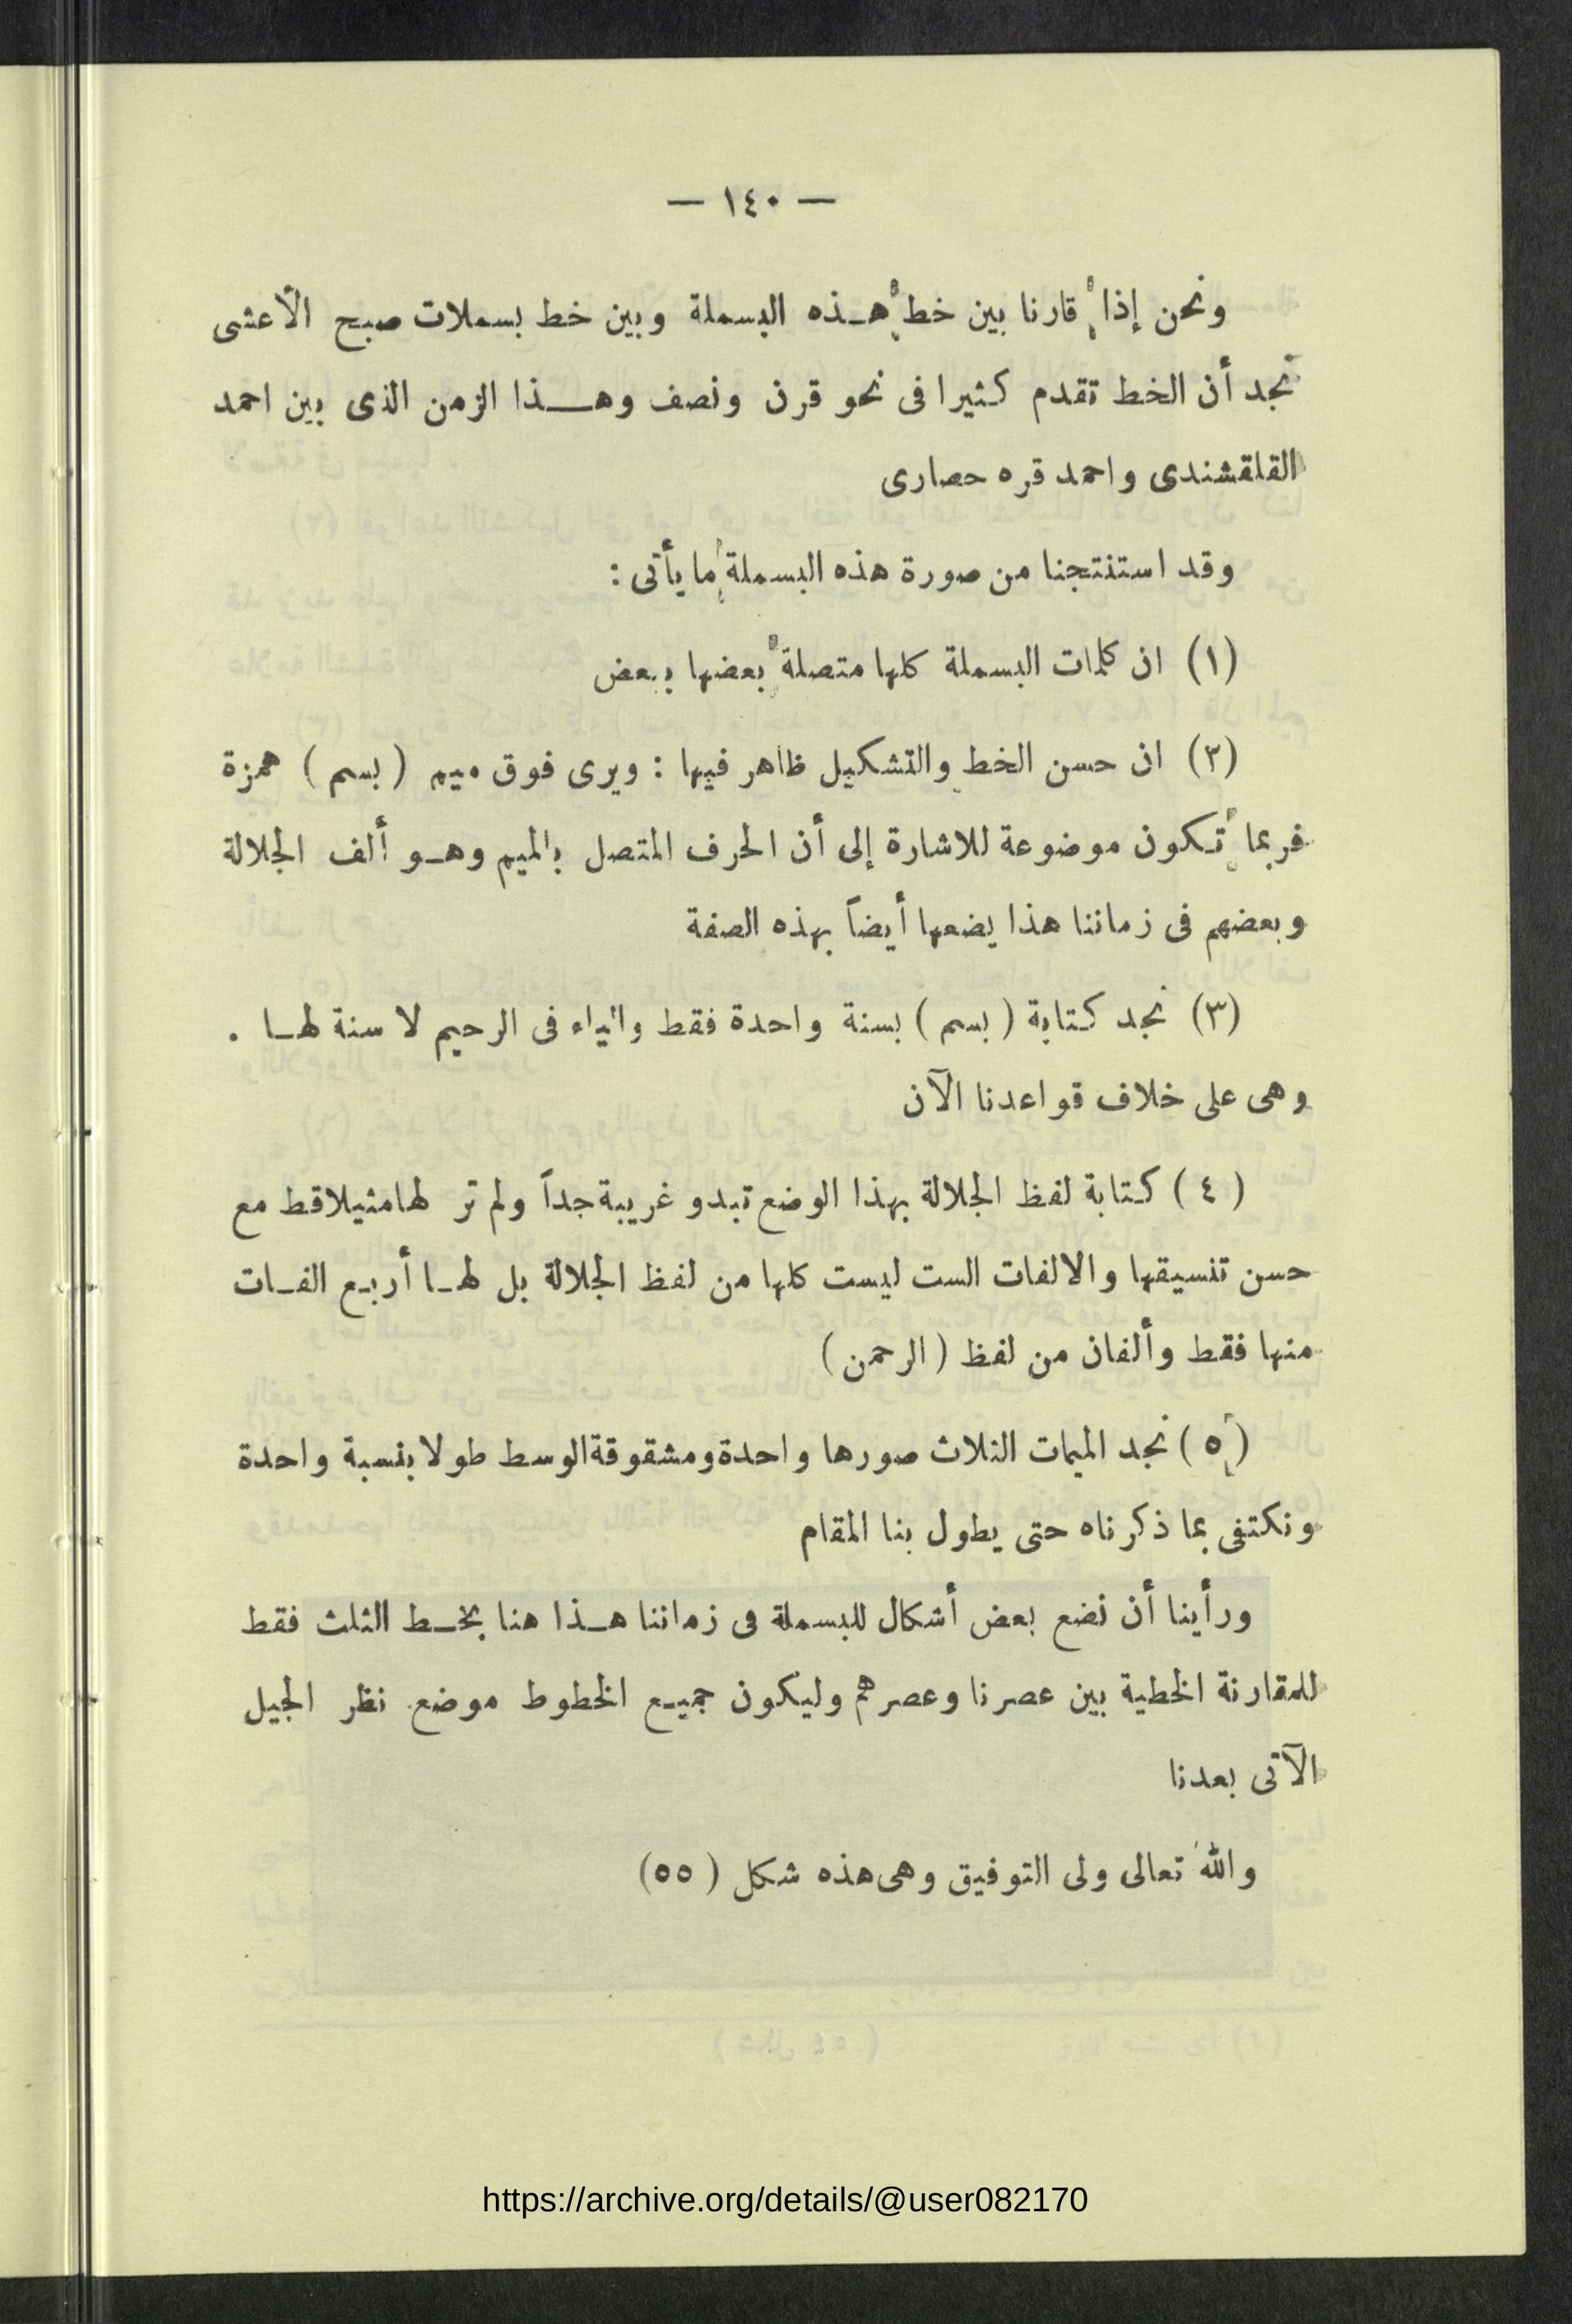 — ١٤٠ —
ونحن إذا قارنا بين خط هذه البسملة وبين خط بسملات صبح الأعشى
نجد أن الخط تقدم كثيرا فى نحو قرن ونصف وهذا الزمن الذى بين احمد
القلقشندى واحمد قره حصارى
وقد استنتجنا من صورة هذه البسملة ما يأتى :
(١) ان كلمات البسملة كلها متصلة بعضها ببعض
(٢) ان حسن الخط والتشكيل ظاهر فيها : ويرى فوق ميم ( بسم ) همزة
فربما تكون موضوعة للاشارة إلى أن الحرف المتصل بالميم وهو ألف الجلالة
وبعضهم فى زماننا هذا يضعها أيضاً بهذه الصفة
(٣) نجد كتابة ( بسم ) بسنة واحدة فقط والياء فى الرحيم لا سنة لها .
وهى على خلاف قواعدنا الآن
( ٤ ) كتابة لفظ الجلالة بهذا الوضع تبدو غريبة جداً ولم تر لها مثيلا قط مع
حسن تنسيقها والالفات الست ليست كلها من لفظ الجلالة بل لها أربع الفات
منها فقط وألفان من لفظ ( الرحمن )
( ٥ ) نجد الميمات الثلاث صورها واحدة ومشقوقة الوسط طولا بنسبة واحدة
ونكتفى بما ذكرناه حتى يطول بنا المقام
ورأينا أن نضع بعض أشكال للبسملة فى زماننا هذا هنا بخط الثلث فقط
للمقارنة الخطية بين عصرنا وعصرهم وليكون جميع الخطوط موضع نظر الجيل
الآتى بعدنا
والله تعالى ولى التوفيق وهى هذه شكل ( ٥٥ )
https://archive.org/details/@user082170